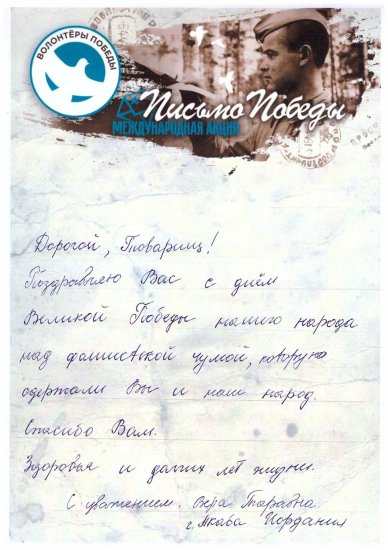 ВОЛОНТЁРЫ ПОБЕДЫ
Письмо Победы
МЕЖДУНАРОДНАЯ АКЦИЯ
Дорогой, Товарищ!
Поздравляю Вас с днём
Великой Победы нашего народа
над фашистской чумой, которую
одержали Вы и наш народ.
Спасибо Вам.
Здоровья и долгих лет жизни.
С уважением. Вера
г. Акаба Иордания